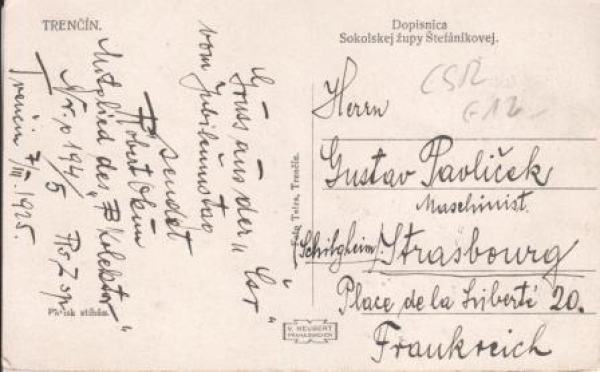 TRENČÍN.
Dopisnica
Sokolskej župy Štefánikovej.
ČSR
Gruss aus der „ ČSR "
vom Jubiläumstag
sendet
Robert
Mitglied des „ Kolektor "
No 194/5
Trenčín 7/III. 1925.
Herrn
Gustav Pavliček
Maschinist.
(Schilgheim) Strasbourg
Place de la Liberté 20.
Frankreich
Foto Tatra, Trenčín.
V. NEUBERT
PRAHA-SMÍCHOV